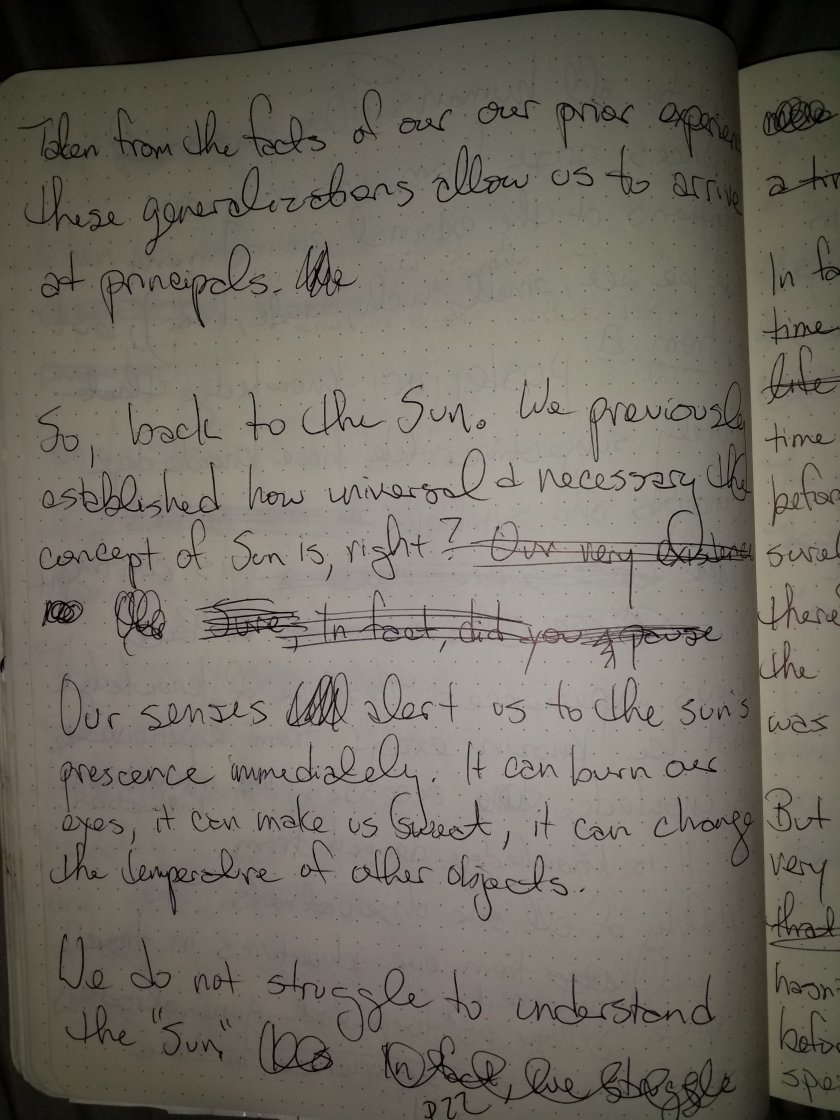 Taken from the facts of our our prior experien
these generalizations allow us to arrive
at principals. We
So, back to the Sun. We previously
established how universal & necessary the
concept of Sun is, right? Our very existence
Sure, In fact, did you pause
Our senses alert us to the sun's
prescence immediately. It can burn our
eyes, it can make us sweat, it can change
the temperature of other objects.
We do not struggle to understand
the "Sun"
In fact, we struggle
p22
a tim
In fa
time
life
time
before
surel
there
the
was
But
very
that
hasn'
before
spe